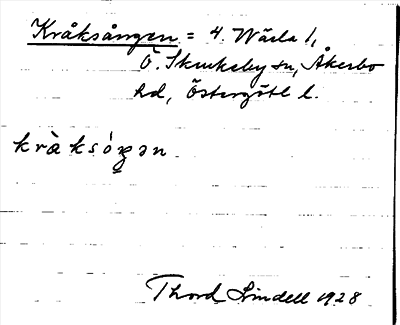 Kråksången = 4 Wäsla 1,
Ö. Skrukeby sn, Åkerbo
hd, Östergötl l.
kràksóŋən
Thord Lindell 1928